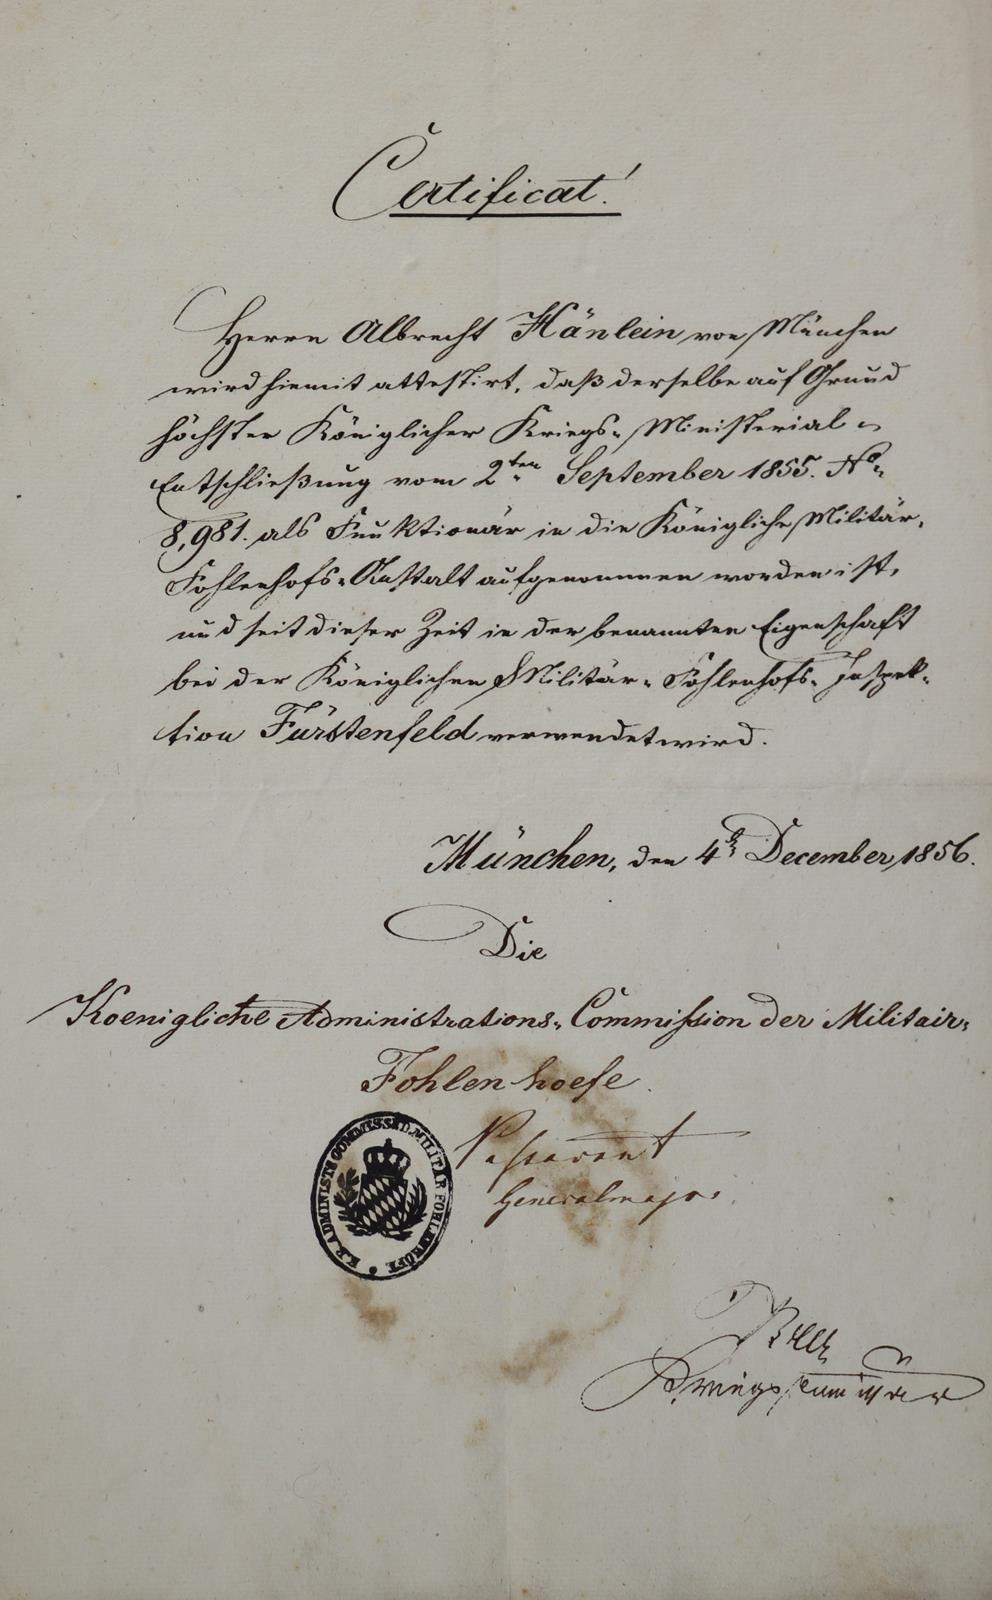 Certificat!
Herrn Albrecht Hänlein von München
wird hiemit attestirt, daß derselbe auf Grund
höchster Königlicher Kriegs-Ministerial-
Entschließung vom 2ten September 1855. No.
8,981. als Funktionär in die Königliche Militär-
Fohlenhofs-Anstalt aufgenommen worden ist,
und seit dieser Zeit in der benannten Eigenschaft
bei der Königlichen Militär-Fohlenhofs-Inspek-
tion Fürstenfeld verwendet wird.
München, den 4t December, 1856.
Die
Koenigliche Administrations-Commission der Militair-
Fohlenhoefe.
K.B. ADMINISTS COMMISS. D. MILITÄR FOHLENHÖFE
Passavant
Generalmajor.
Kriegskommissär